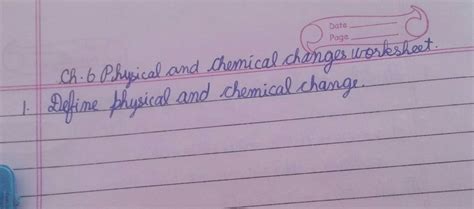 Date
Page
Ch.6 Physical and chemical changes worksheet.
1. Define physical and chemical change.